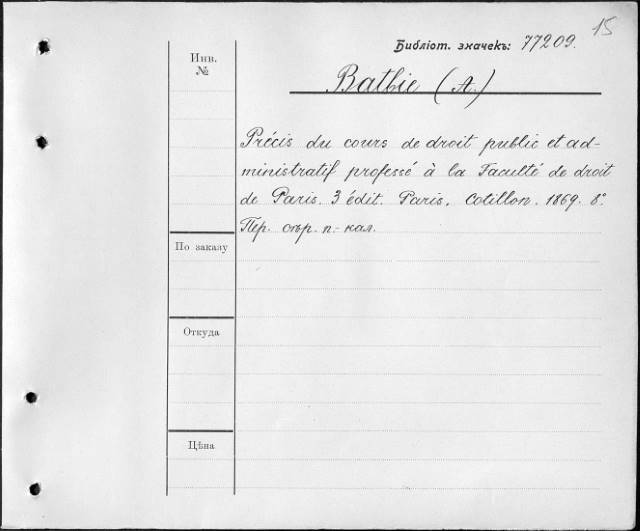 15
Библіот. значекъ: 77209.
Инв.
№
Batbie (A.)
Précis du cours de droit public et ad-
ministratif professé à la Faculté de droit
de Paris. 3 édit. Paris, Cotillon. 1869. 8°.
Пер. сѣр. п.-кал.
По заказу
Откуда
Цѣна